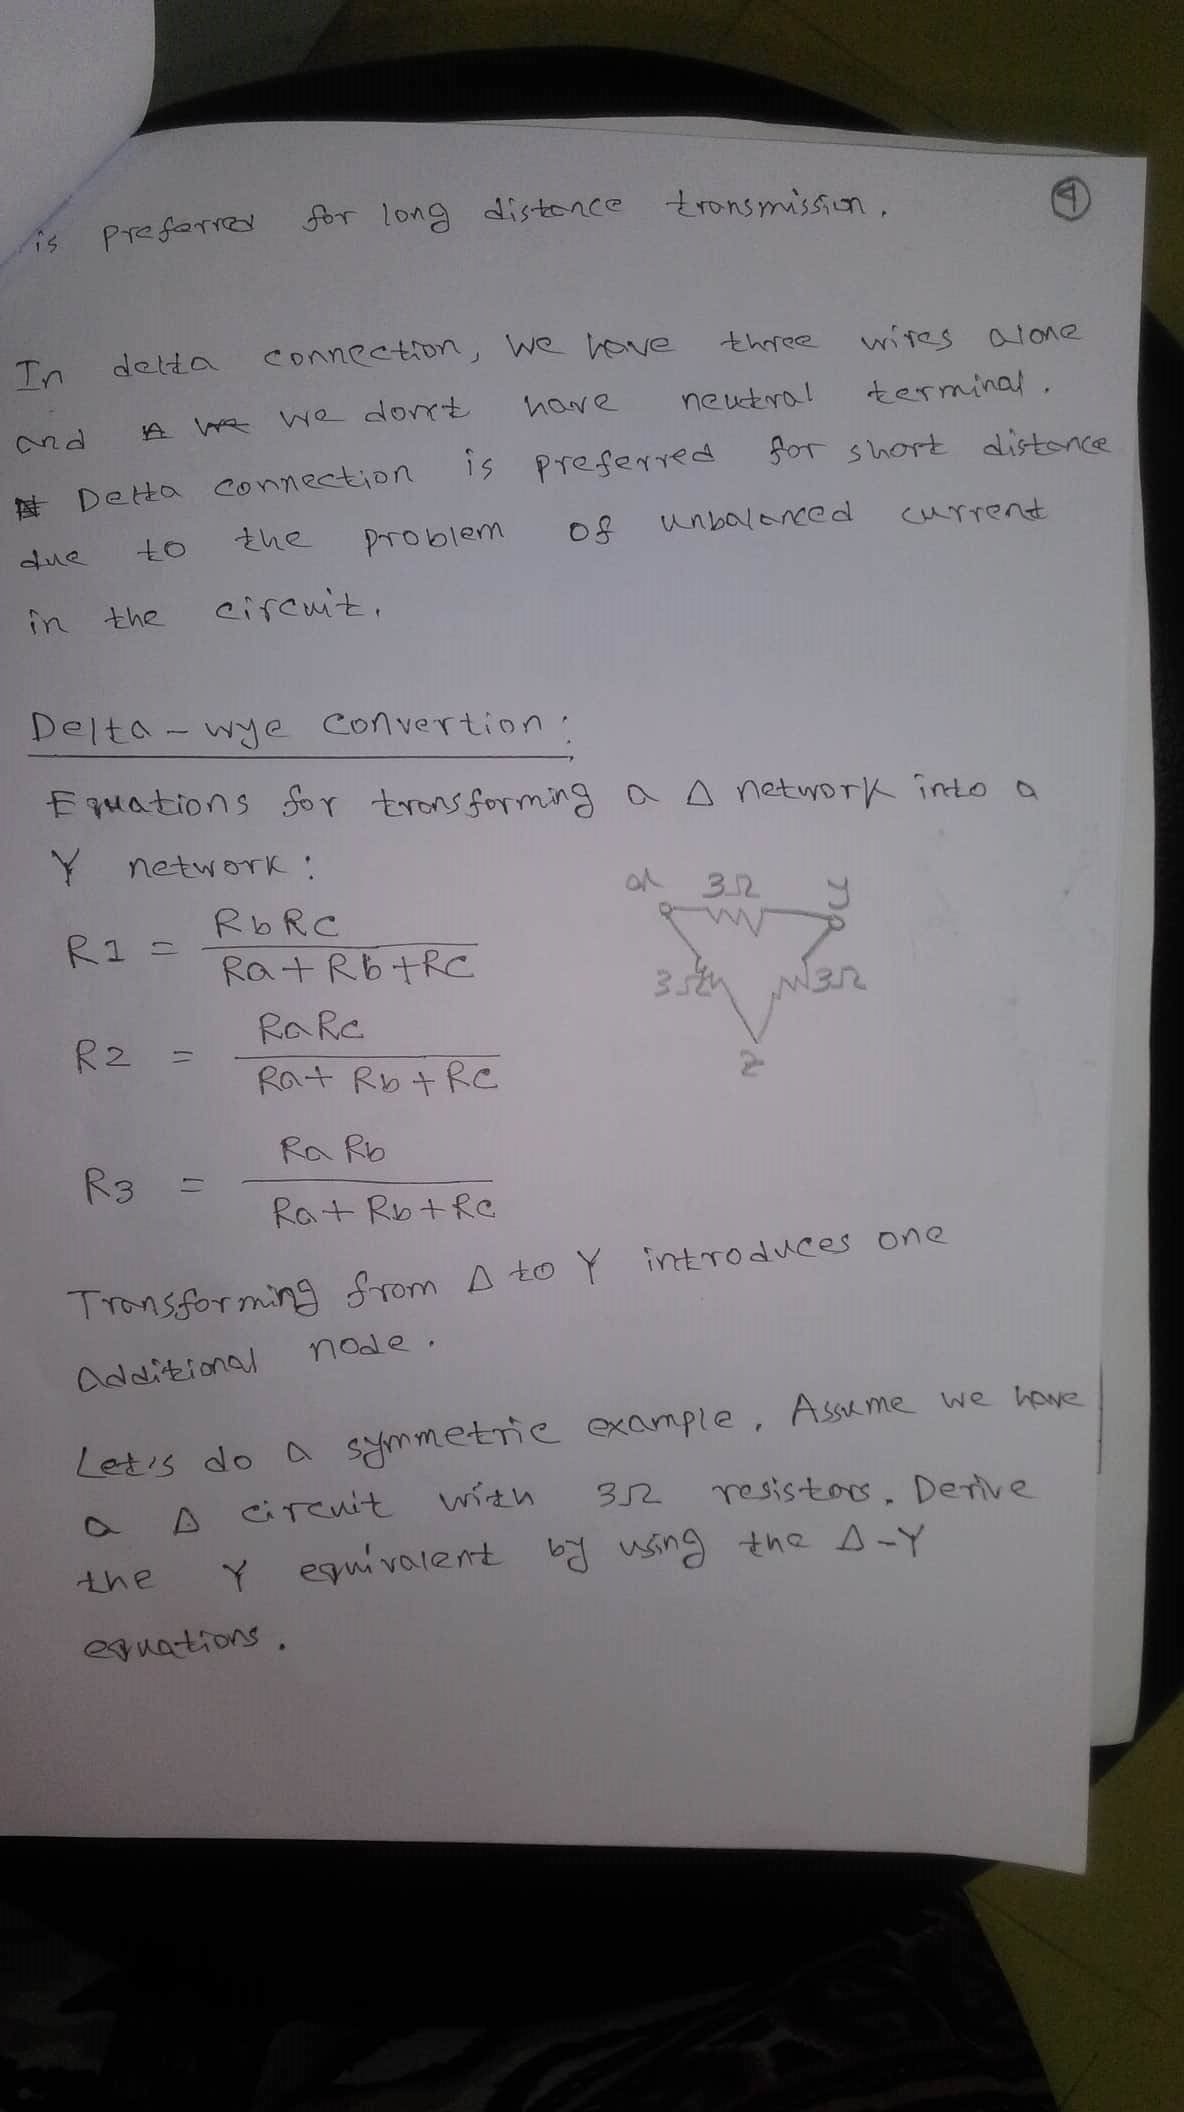 ④
is preferred for long distance transmission.
In delta connection, we have three wires alone
and we don't have neutral terminal.
Delta connection is preferred for short distance
due to the problem of unbalanced current
in the circuit.
Delta - wye convertion:
Equations for transforming a Δ network into a
Y network:
R1 = RbRc / Ra + Rb + Rc
R2 = RaRc / Ra + Rb + Rc
R3 = Ra Rb / Ra + Rb + Rc
3Ω y
3Ω 3Ω
z
Transforming from Δ to Y introduces one
additional node.
Let's do a symmetric example. Assume we have
a Δ circuit with 3Ω resistors. Derive
the Y equivalent by using the Δ-Y
equations.